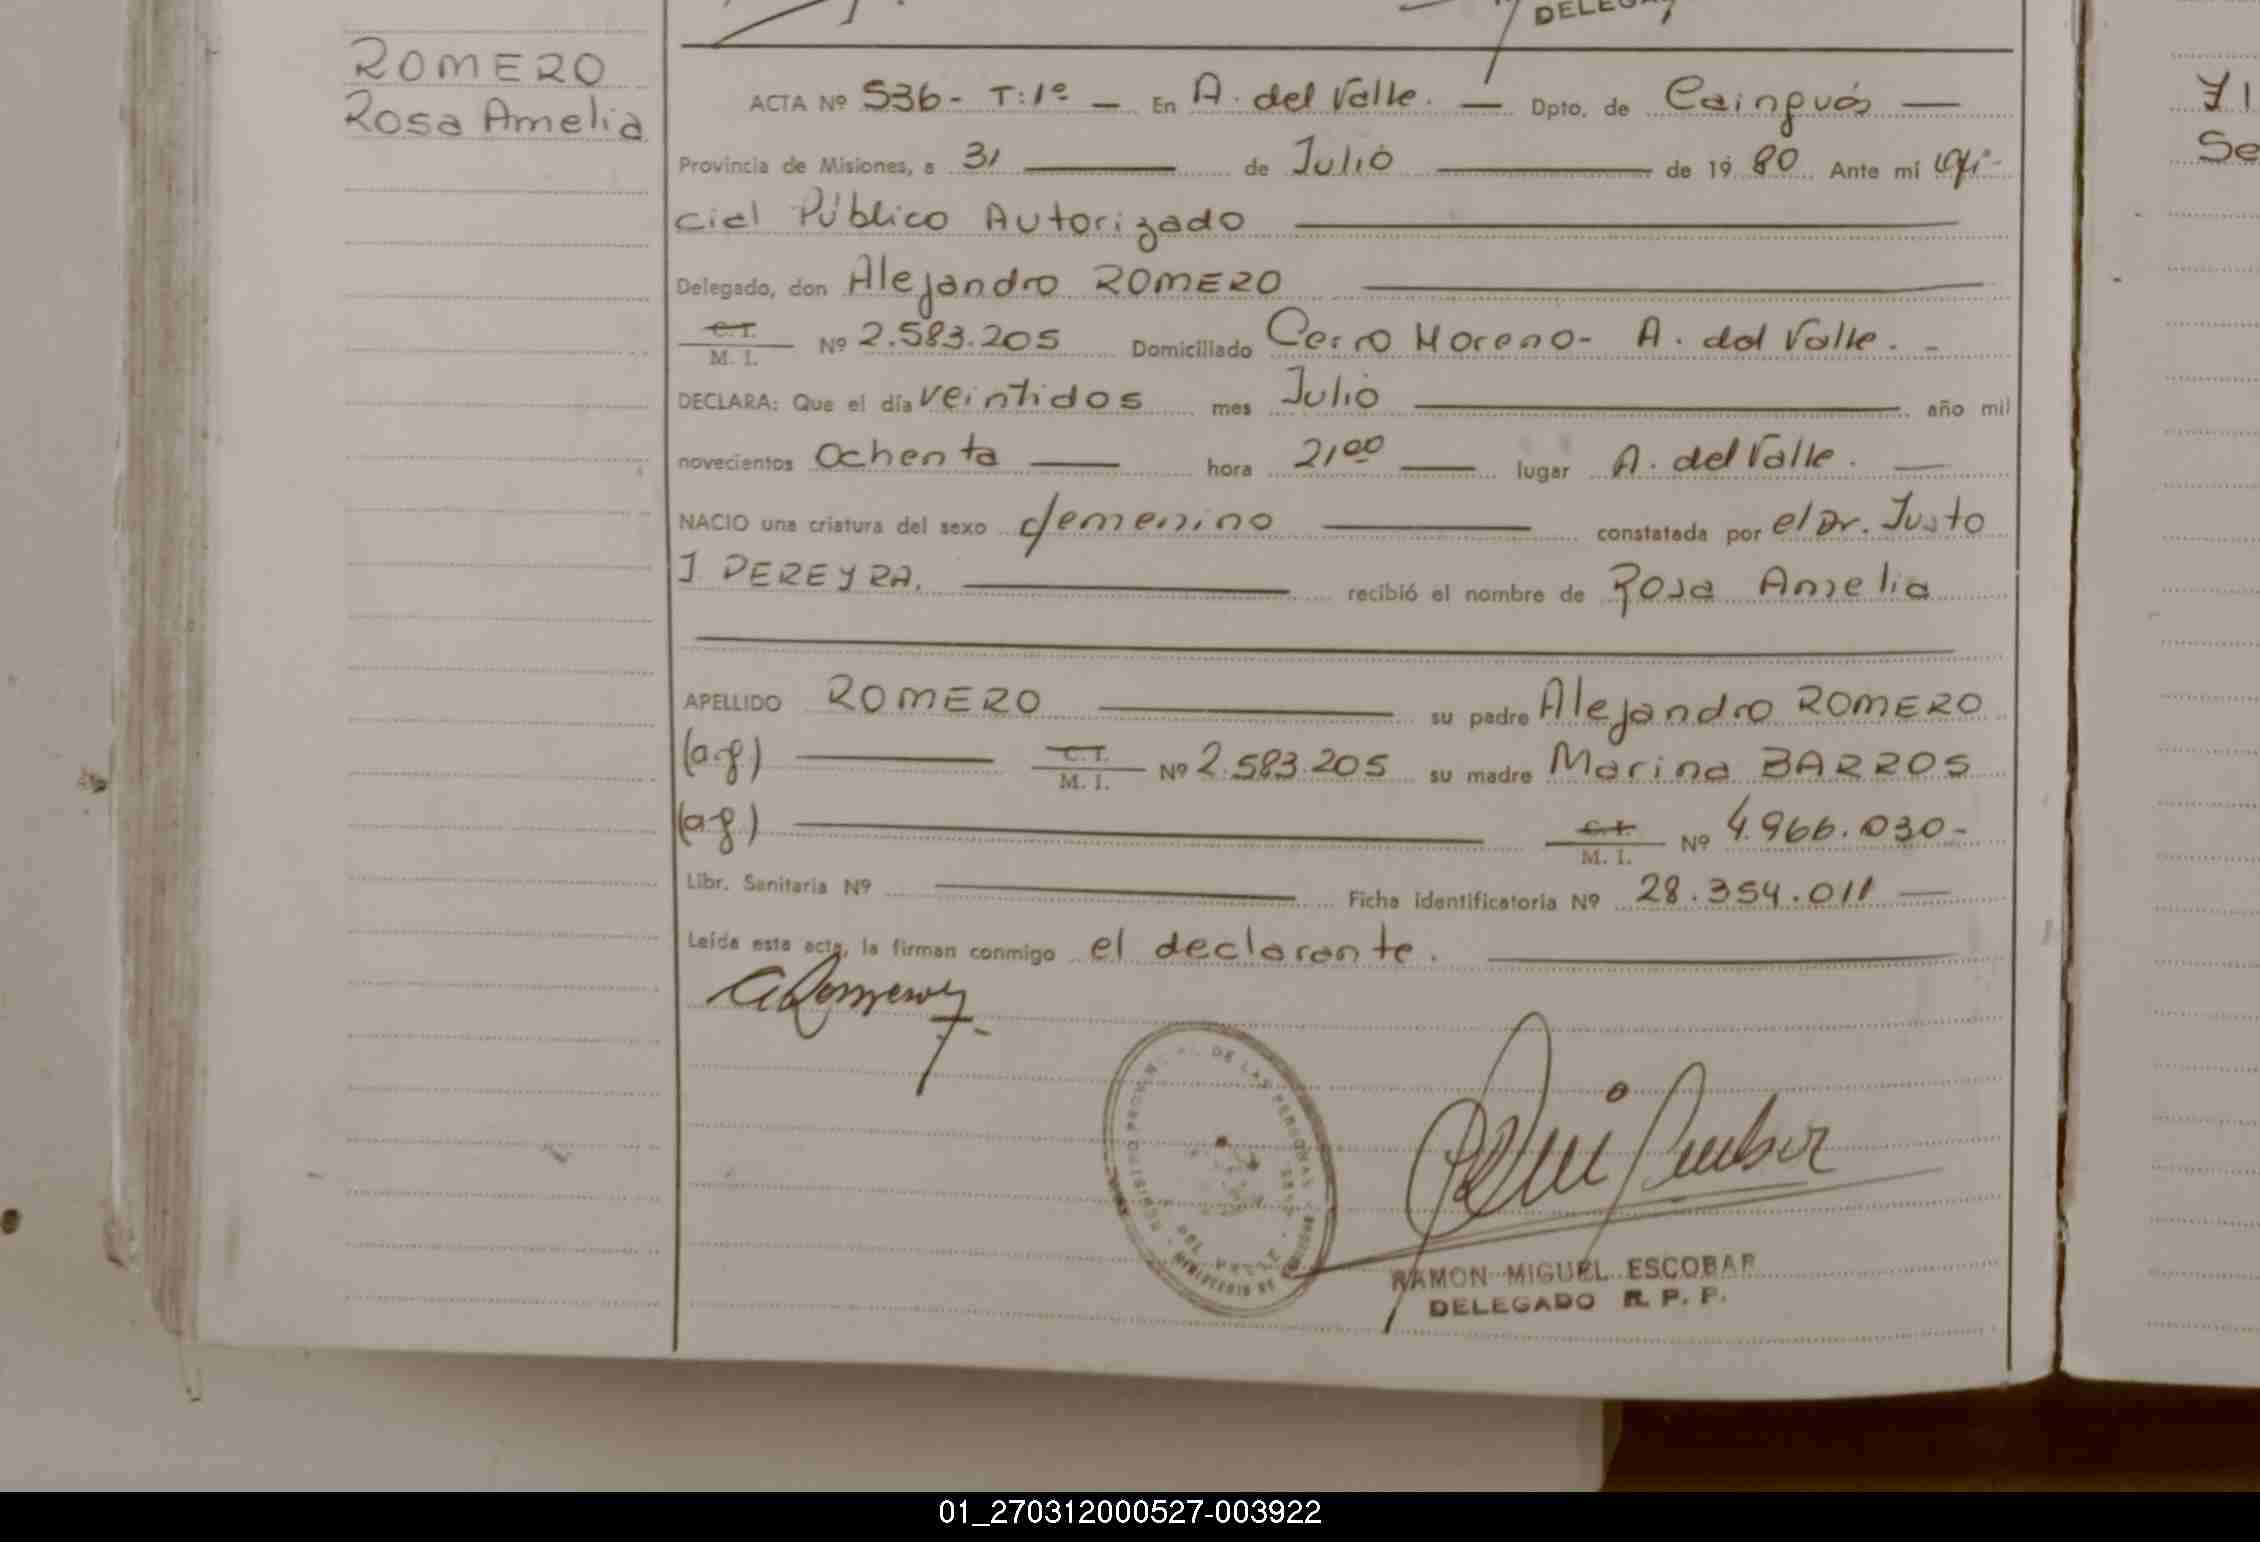 DELEGA
ROMERO
Rosa Amelia
ACTA Nº 536- T:1º — En A. del Valle. — Dpto. de Cainguás —
Provincia de Misiones, a 31 — de Julio — de 19 80 Ante mí Ofi-
cial Público Autorizado —
Delegado, don Alejandro ROMERO —
C. I.
M. I. Nº 2.583.205 Domiciliado Cerro Moreno- A. del Valle. -
DECLARA: Que el día veintidos mes Julio — año mil
novecientos ochenta — hora 21⁰⁰ — lugar A. del Valle. —
NACIO una criatura del sexo femenino — constatada por el Dr. Justo
J PEREYRA. — recibió el nombre de Rosa Amelia
APELLIDO ROMERO — su padre Alejandro ROMERO
(a.g.) — C. I.
M. I. Nº 2.583.205 su madre Marina BARROS
(a.g.) — C. I.
M. I. Nº 4.966.030-
Libr. Sanitaria Nº — Ficha identificatoria Nº 28.354.011 —
Leída esta acta, la firman conmigo el declarante. —
DE LAS PERSONAS
RAMON MIGUEL ESCOBAR
DELEGADO R. P. P.
Se
01_270312000527-003922